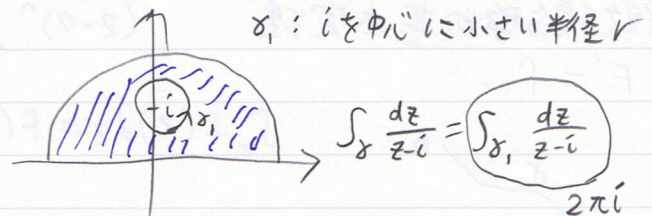 γ₁ : iを中心に小さい半径r
i
γ₁
∫_γ dz/(z-i) = ∫_γ₁ dz/(z-i)
2πi